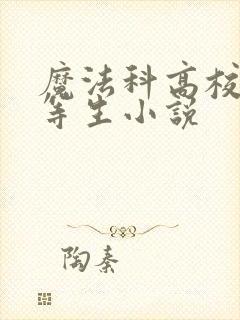 魔法科高校
等生小說
陶秦